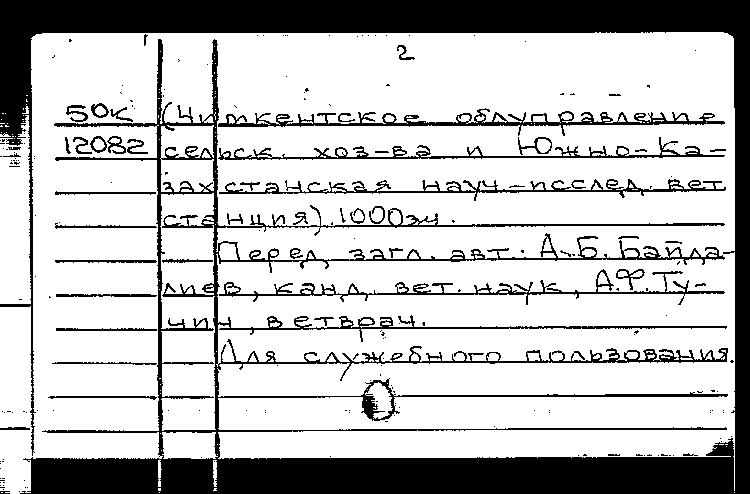 2
50к (Чимкентское облуправление
12082 сельск. хоз-ва и Южно-Ка-
захстанская науч-исслед. вет.
станция). 1000экз.
Перед загл. авт.: А.Б. Байда-
лиев, канд. вет. наук, А.Ф. Ту-
чин, ветврач.
Для служебного пользования.